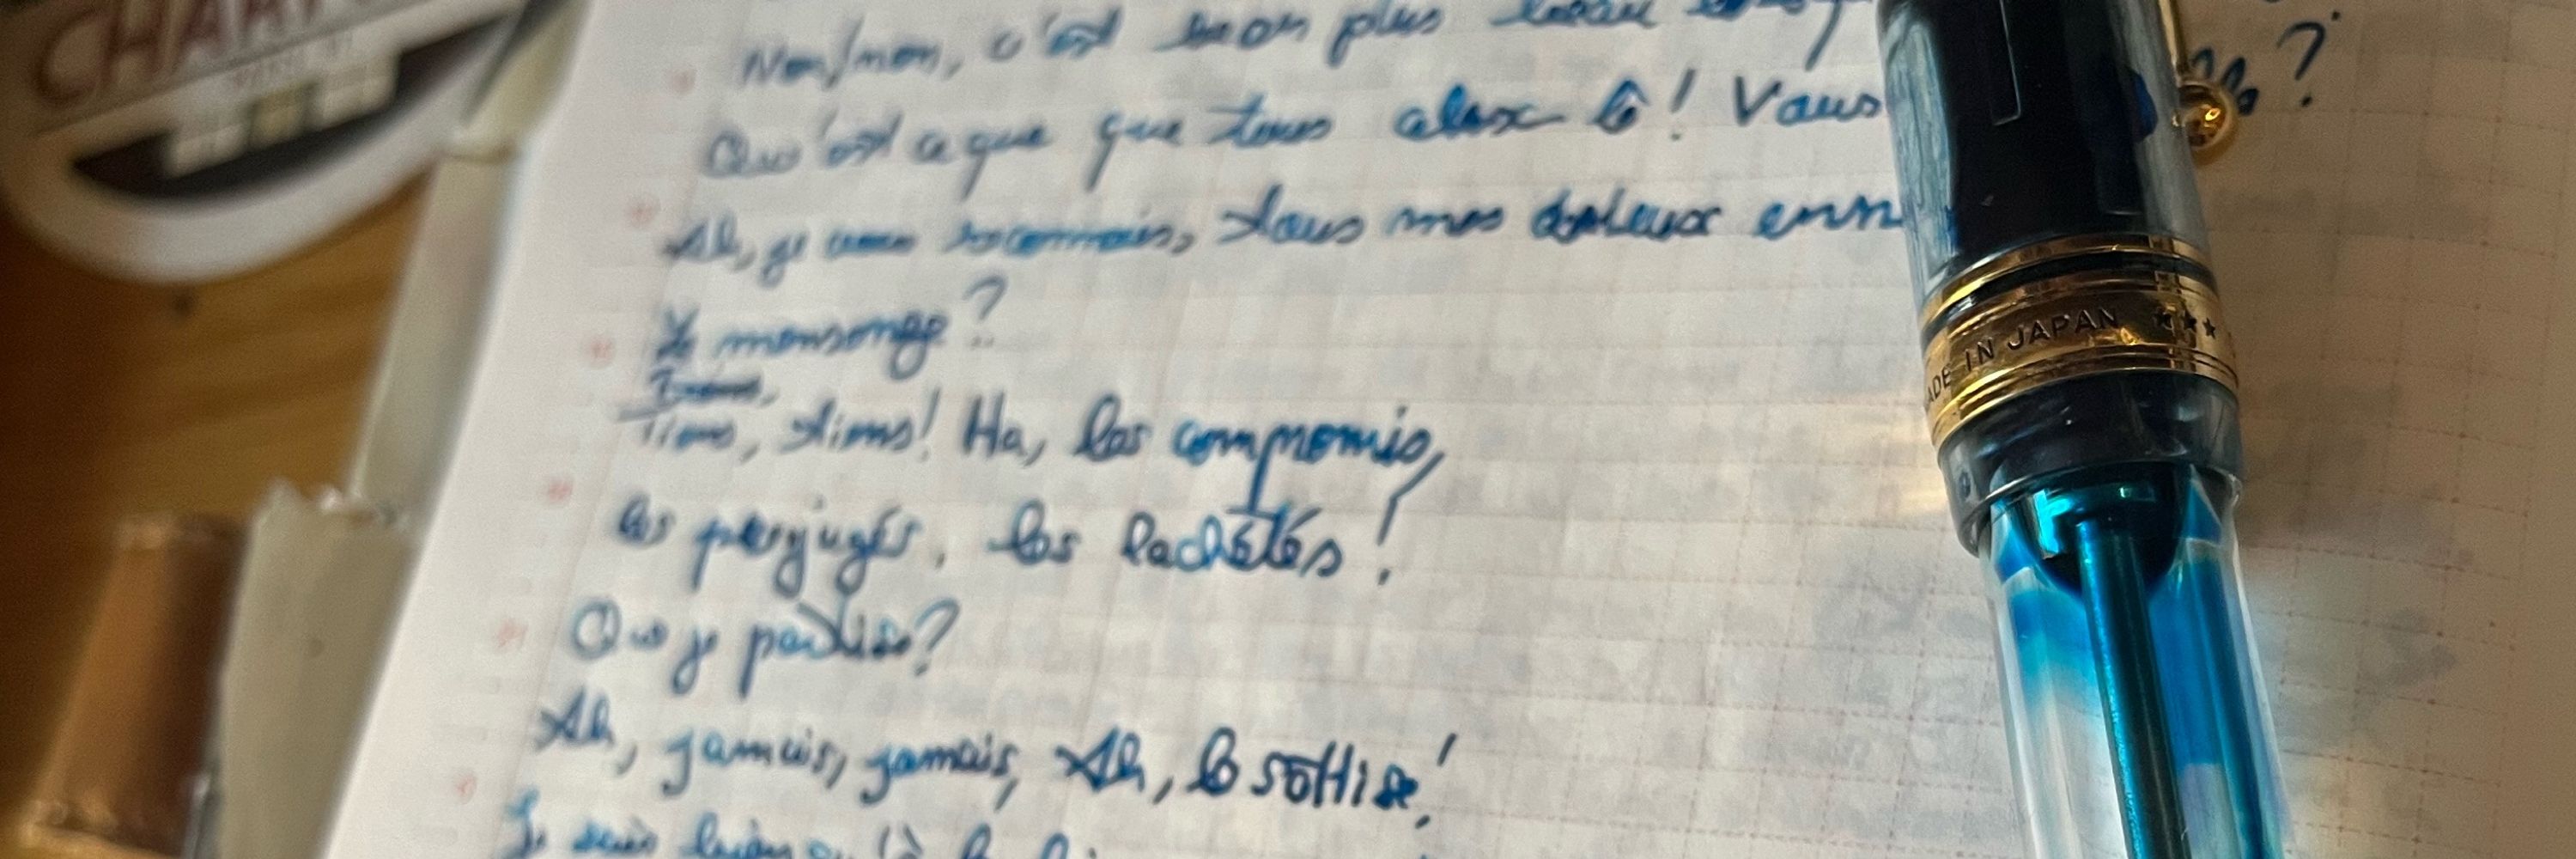 CHAR
Non, non, c'est bien plus beau
Qu'est ce que que tous là! Vous
Ah, je vous reconnais, tous mes vieux enn
?
Le mensonge?
Tiens, tiens! Ha, les compromis,
les perjugés, les lachétés!
Que je pactise?
Ah, jamais, jamais, Ah, la sottise!
Je sais bien qu'à la fin
MADE IN JAPAN ★★★